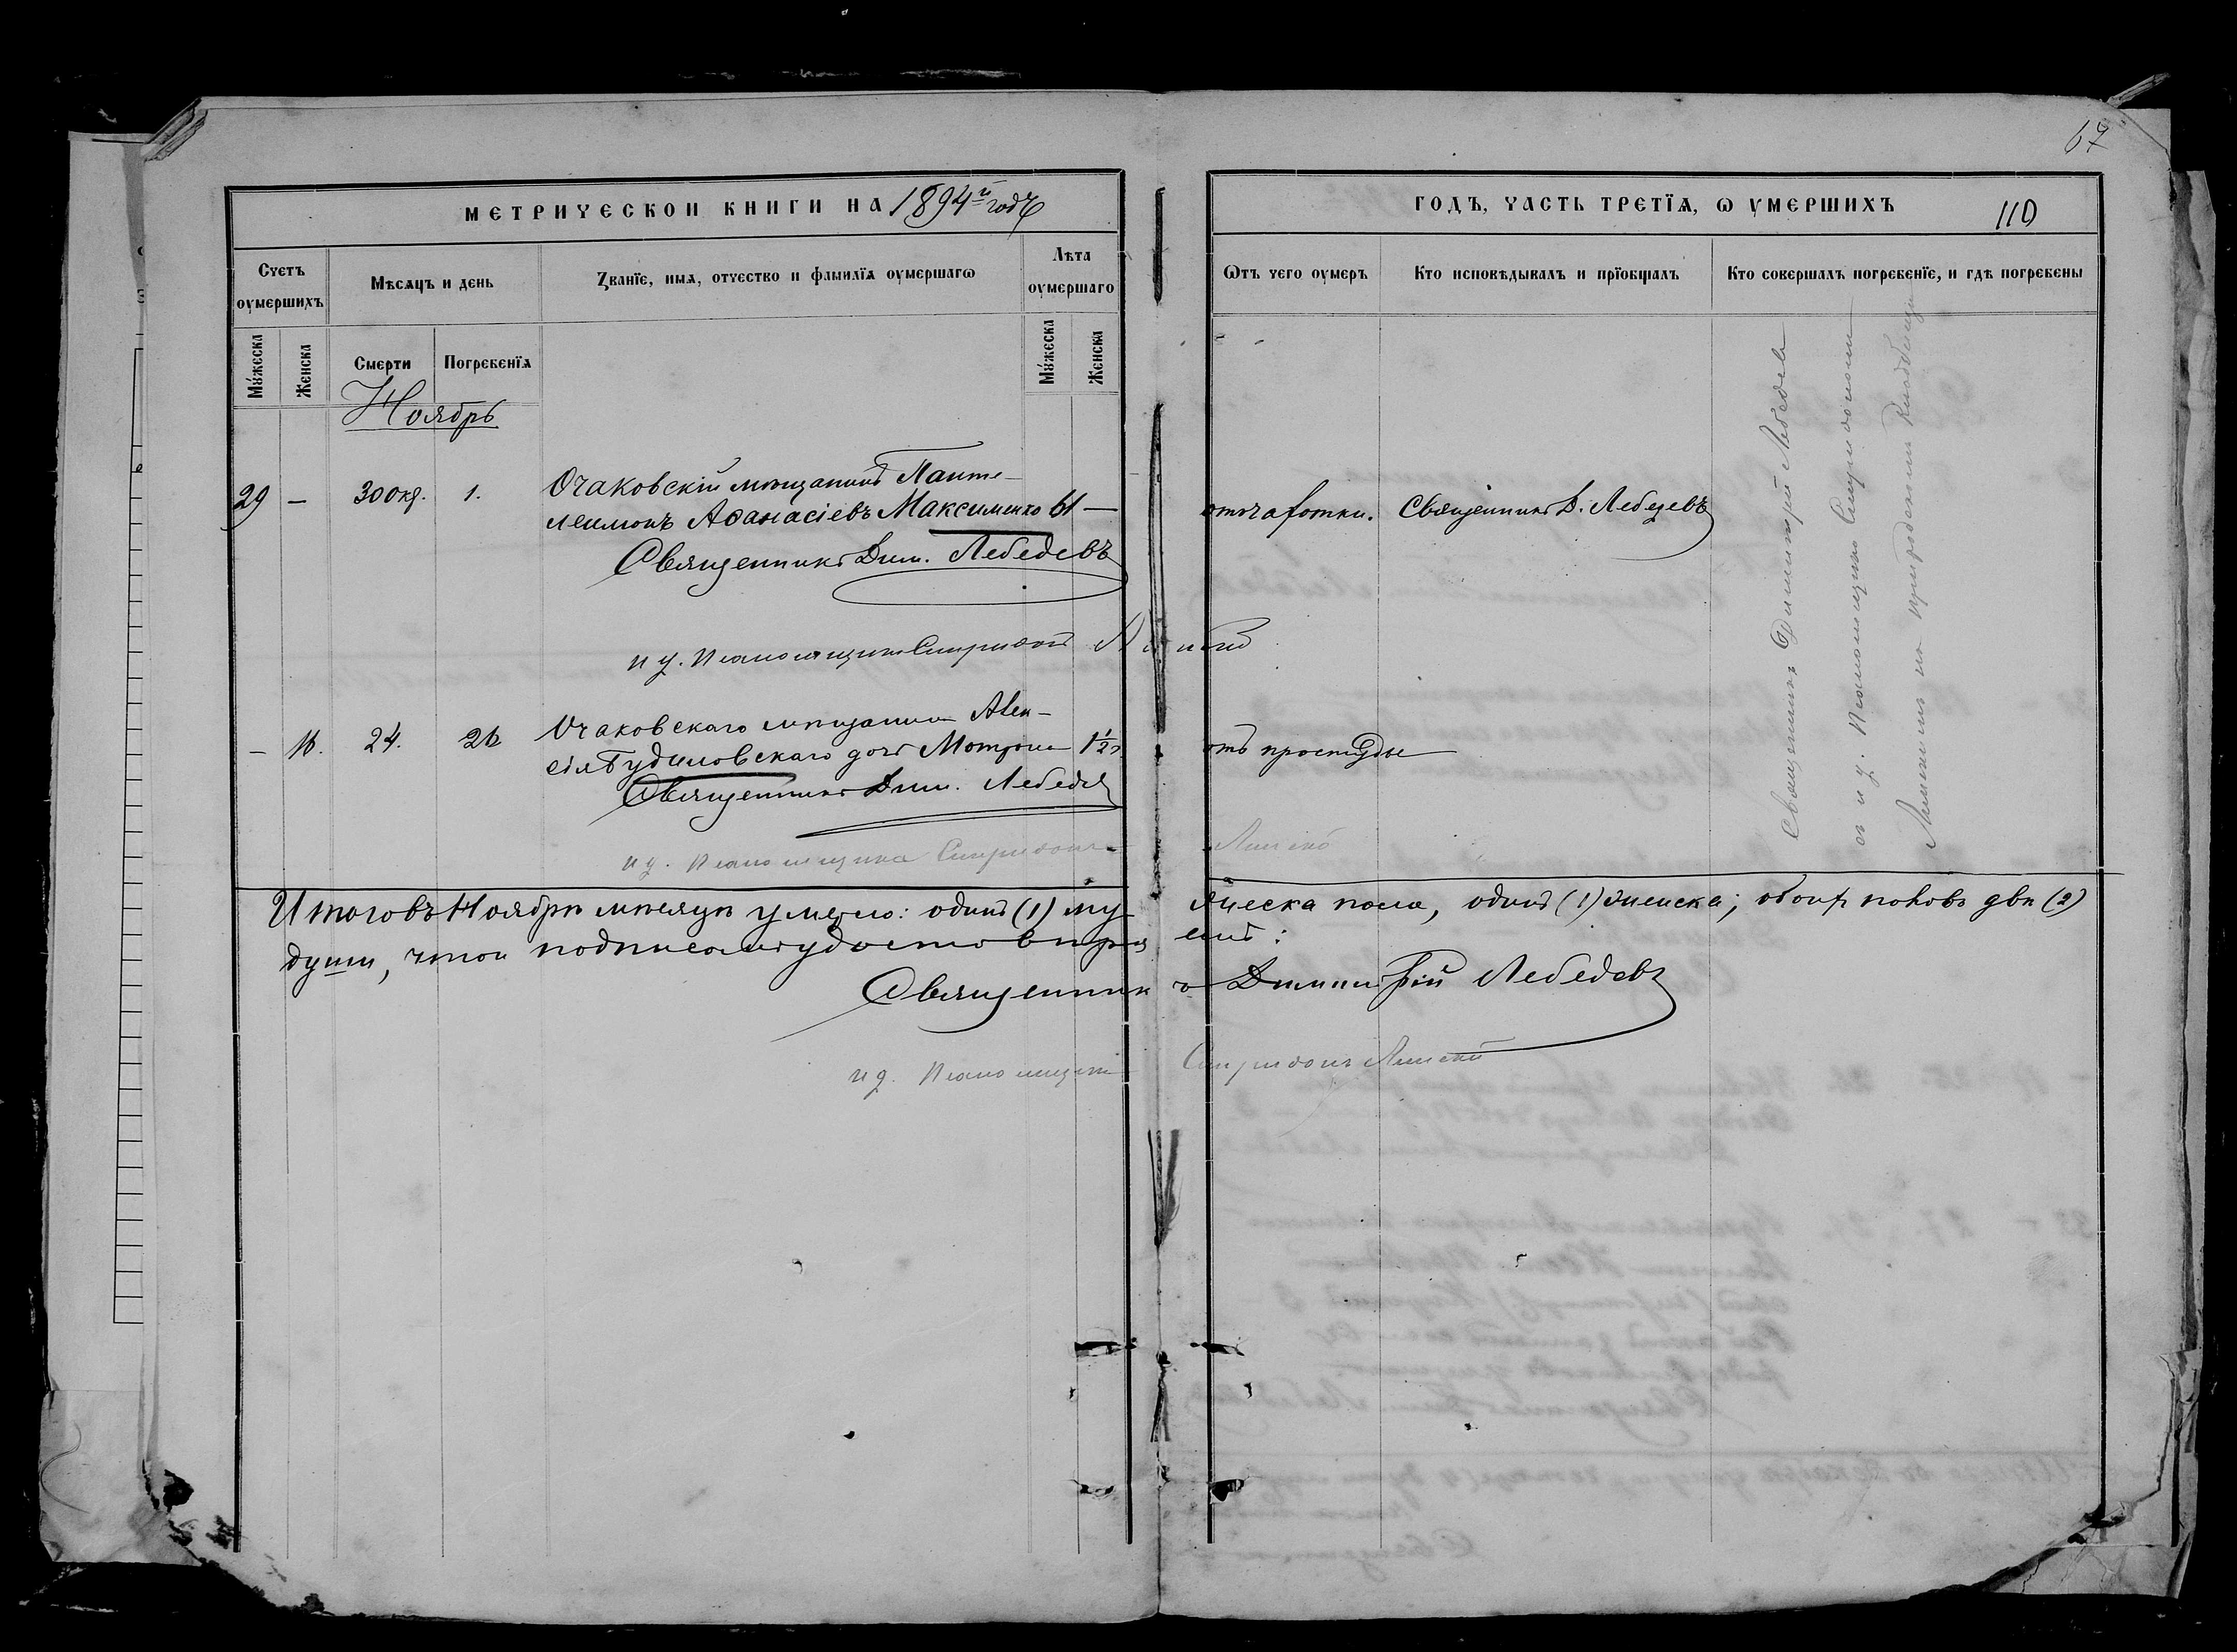 67
МЕТРИЧЕСКОЙ КНИГИ НА 1894й годъ
ГОДЪ, ЧАСТЬ ТРЕТЇѦ, Ѡ УМЕРШИХЪ
110
Счетъ оумершихъ
Мѣсѧцъ и день
Званїе, имѧ, отчество и фамилїѧ оумершагѡ
Лѣта оумершаго
Ѿтъ чего оумеръ
Кто исповѣдывалъ и прїобщалъ
Кто совершалъ погребенїе, и гдѣ погребены
Мужеска
Женска
Смерти
Погребенїѧ
Мужеска
Женска
Ноябрь
29 — 30 окт. 1. Очаковскій мѣщанинъ Панте-
леимонъ Аѳанасіевъ Максименко 61 —
отъ чахотки. Священникъ Д. Лебедевъ
Священникъ Дим. Лебедевъ
и д. Псаломщика Спиридонъ
Священникъ Димитрій Лебедевъ
съ и д. Псаломщика Спиридономъ
на приходскомъ кладбищѣ
— 16. 24. 26 Очаковскаго мѣщанина Алек-
сія Будиловскаго дочь Мотрона 1½
отъ простуды
Священникъ Дим. Лебедев
и д. Псаломщика Спиридонъ
Итого въ Ноябрѣ мѣсяцѣ умерло: одинъ (1) мужеска пола, одинъ (1) женска; обоихъ половъ двѣ (2)
души, что и подписомъ удостовѣряемъ:
Священникъ Димитрій Лебедевъ
и д. Псаломщика Спиридонъ